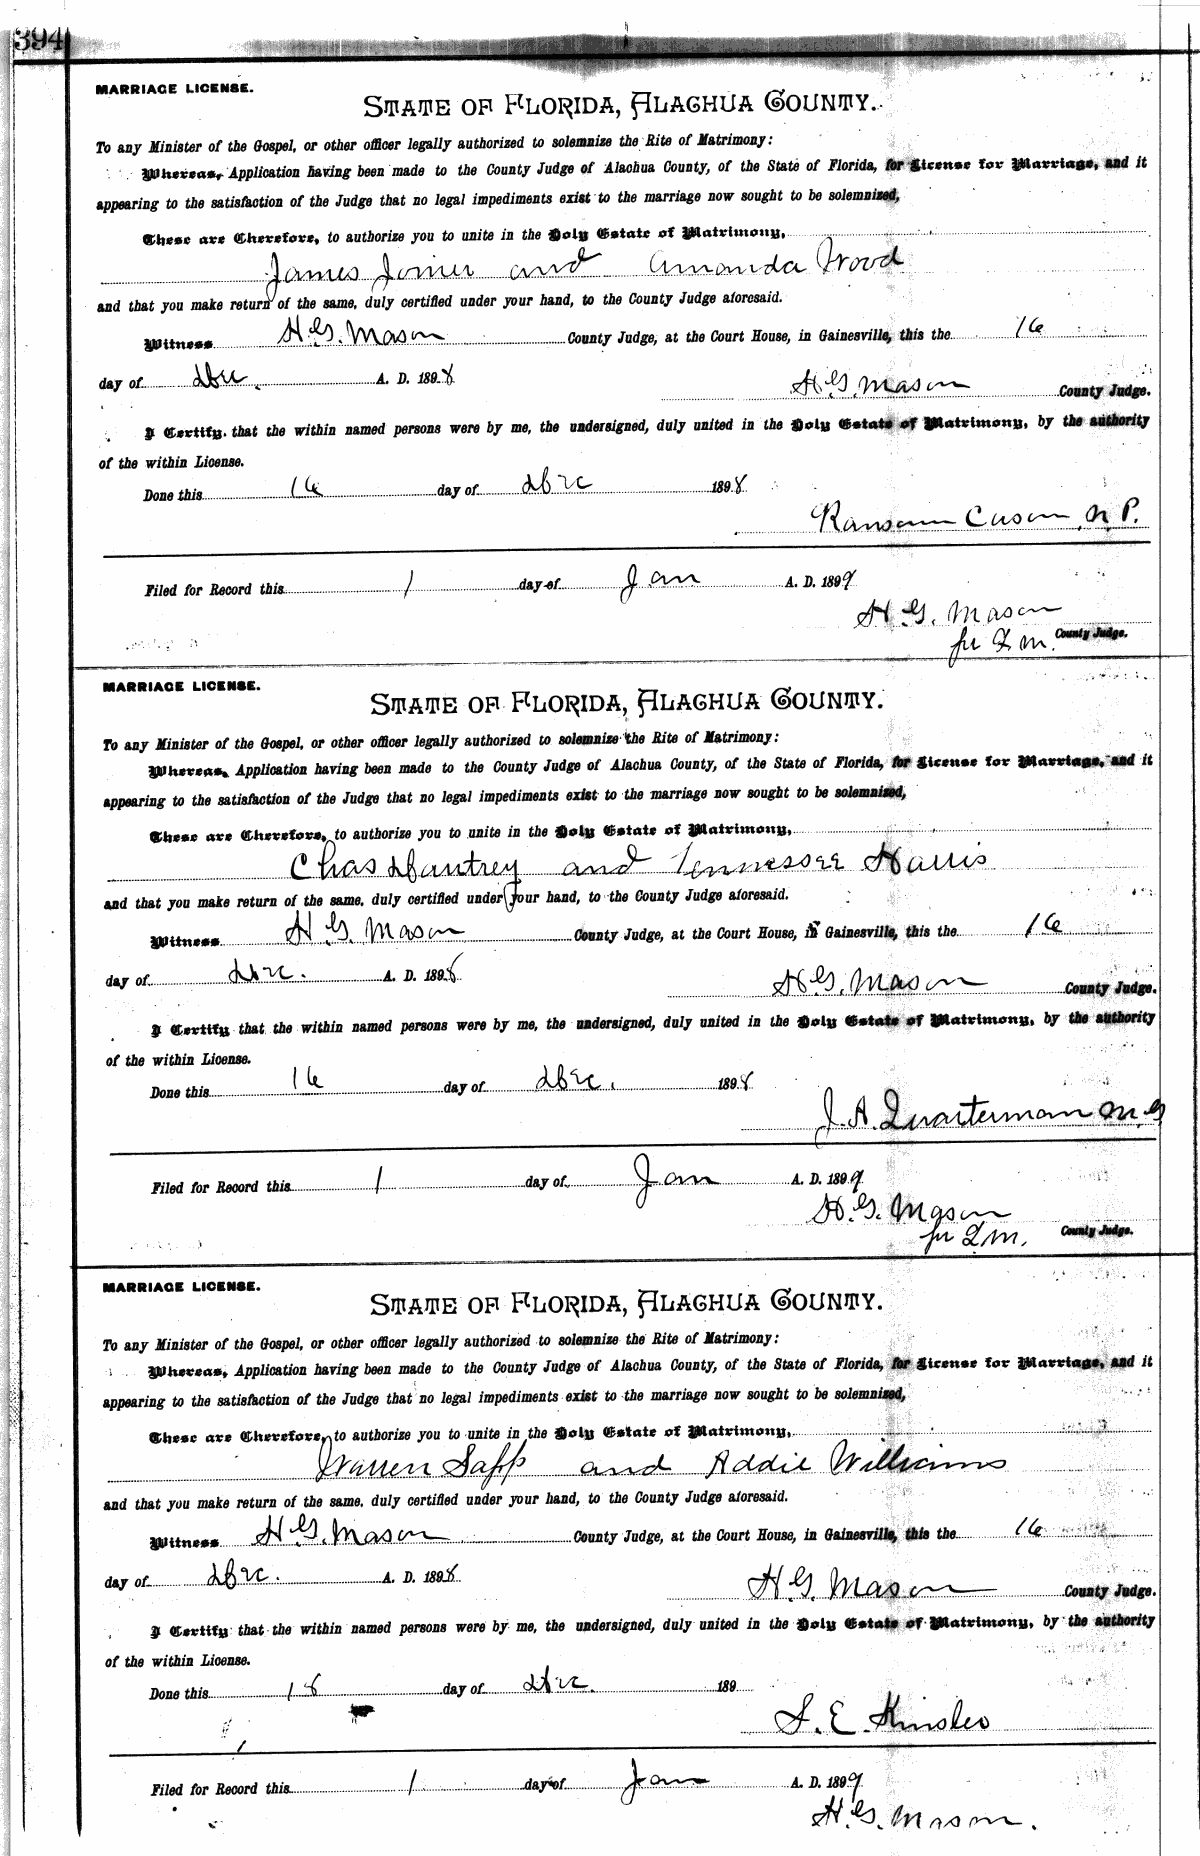 394
MARRIAGE LICENSE.
STATE OF FLORIDA, ALACHUA COUNTY.
To any Minister of the Gospel, or other officer legally authorized to solemnize the Rite of Matrimony:
Whereas, Application having been made to the County Judge of Alachua County, of the State of Florida, for License for Marriage, and it
appearing to the satisfaction of the Judge that no legal impediments exist to the marriage now sought to be solemnized,
These are Therefore, to authorize you to unite in the Holy Estate of Matrimony,
James Joiner and Amanda Wood
and that you make return of the same, duly certified under your hand, to the County Judge aforesaid.
Witness H.G. Mason County Judge, at the Court House, in Gainesville, this the 16
day of Dec. A. D. 1898
H.G. Mason County Judge.
I Certify that the within named persons were by me, the undersigned, duly united in the Holy Estate of Matrimony, by the authority
of the within License.
Done this 16 day of Dec 1898
Ransom Cason, N.P.
Filed for Record this 1 day of Jan A. D. 1899
H.G. Mason
County Judge.
MARRIAGE LICENSE.
STATE OF FLORIDA, ALACHUA COUNTY.
To any Minister of the Gospel, or other officer legally authorized to solemnize the Rite of Matrimony:
Whereas, Application having been made to the County Judge of Alachua County, of the State of Florida, for License for Marriage, and it
appearing to the satisfaction of the Judge that no legal impediments exist to the marriage now sought to be solemnized,
These are Therefore, to authorize you to unite in the Holy Estate of Matrimony,
Chas and Tennessee Harris
and that you make return of the same, duly certified under your hand, to the County Judge aforesaid.
Witness H.G. Mason County Judge, at the Court House, in Gainesville, this the 16
day of Dec. A. D. 1898
H.G. Mason County Judge.
I Certify that the within named persons were by me, the undersigned, duly united in the Holy Estate of Matrimony, by the authority
of the within License.
Done this 16 day of Dec. 1898
J.A. Quarterman M.G
Filed for Record this 1 day of Jan A. D. 1899
H.G. Mason
County Judge.
MARRIAGE LICENSE.
STATE OF FLORIDA, ALACHUA COUNTY.
To any Minister of the Gospel, or other officer legally authorized to solemnize the Rite of Matrimony:
Whereas, Application having been made to the County Judge of Alachua County, of the State of Florida, for License for Marriage, and it
appearing to the satisfaction of the Judge that no legal impediments exist to the marriage now sought to be solemnized,
These are Therefore, to authorize you to unite in the Holy Estate of Matrimony,
Warren Sapp and Addie Williams
and that you make return of the same, duly certified under your hand, to the County Judge aforesaid.
Witness H.G. Mason County Judge, at the Court House, in Gainesville, this the 16
day of Dec. A. D. 1898
H.G. Mason County Judge.
I Certify that the within named persons were by me, the undersigned, duly united in the Holy Estate of Matrimony, by the authority
of the within License.
Done this 18 day of Dec. 189
S.E. Kinsler
Filed for Record this 1 day of Jan A. D. 1899
H.G. Mason.